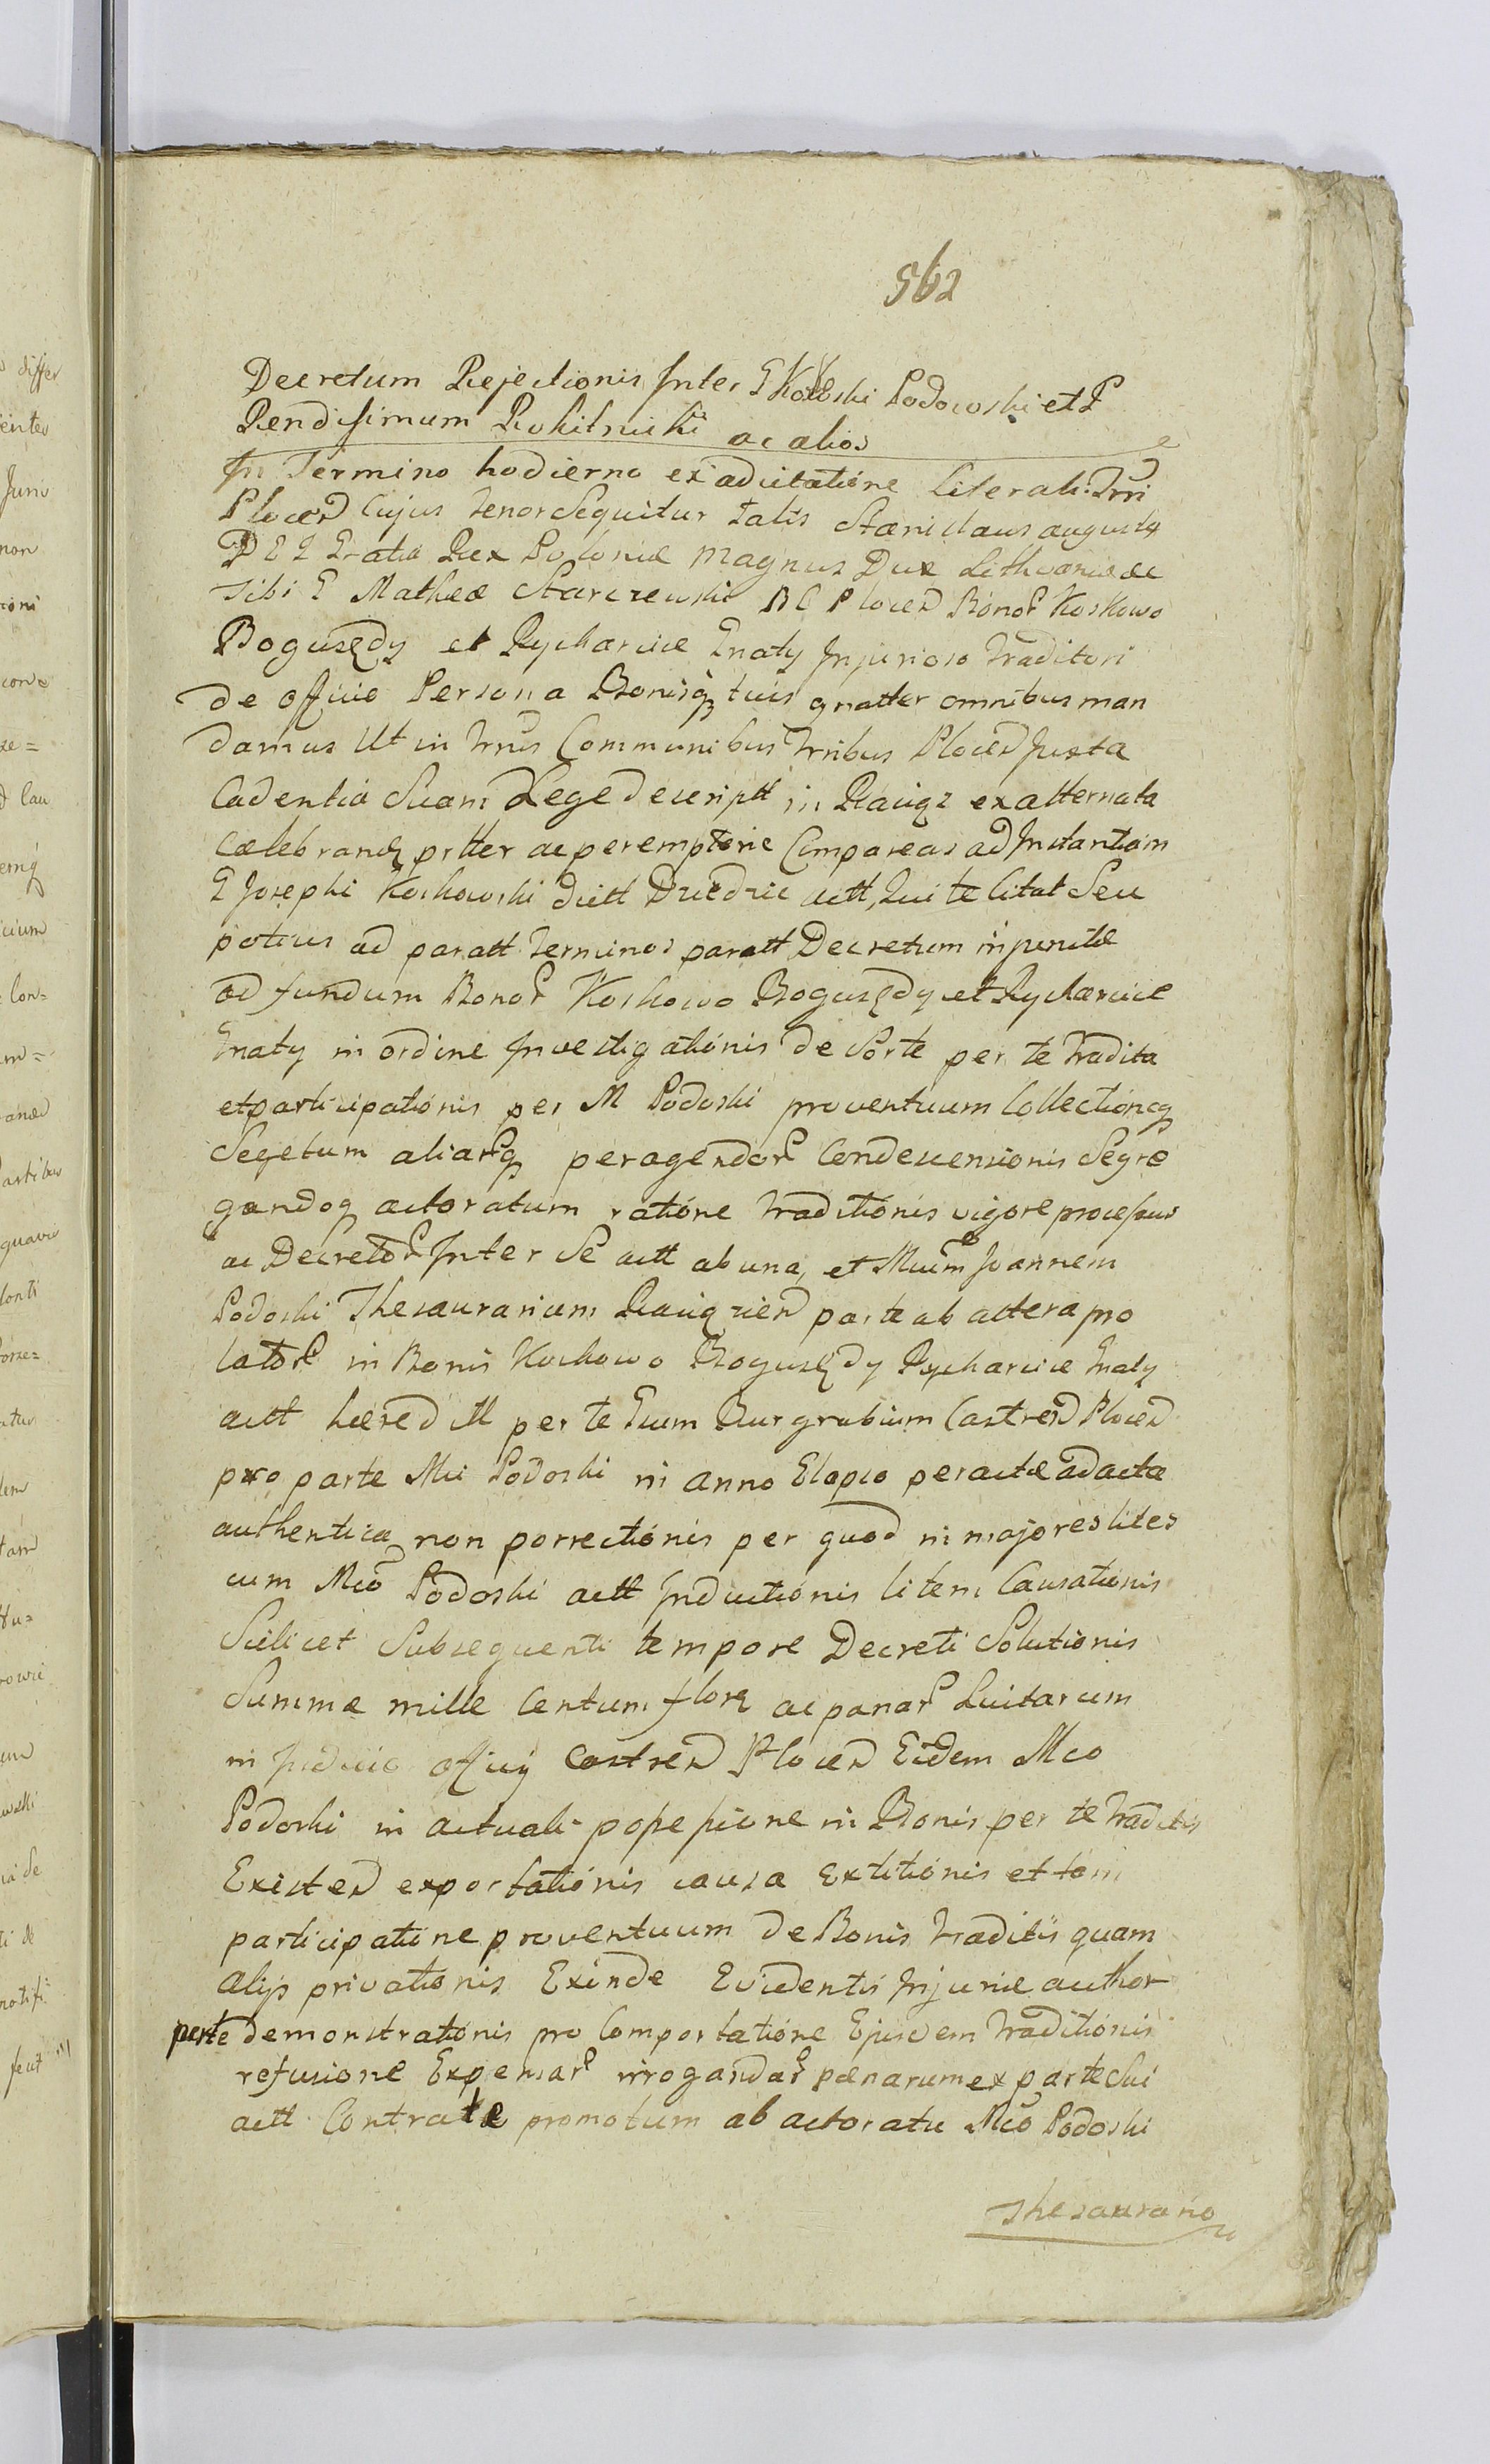 562
Decretum Rejectionis Inter G Koskoski Podowski et P
Rendissimum Rokitnicki ac alios
In Termino hodierno ex adcitatione Literali Trri
Plocen Cujus tenor Sequitur talis Stanislaus august9
DEI Gratia Rex Poloniæ Magnus Dux Lithuaniæ &c
Tibi G Matheæ Starczewski BC Plocen Bonor Koskowo
Bogusędy et Rycharcice Gnaty Injurioso traditori
de officio Persona Bonisq tuis gnatter omnibus man
damus Ut in trris Communibus trribus Plocen Juxta
Cadentia Suam Lege descriptt in Raciąz ex alternata
Celebrand prtter ac peremptorie Compareas ad Instantiam
G Josephi Koskowski dictt Dziedzic actt, Qui te Citat Seu
potius ad paratt terminos paratt Decretum injunctæ
ad fundum Bonor Koskowo Bogusędy et Rycharcice
Gnaty in ordine Investigationis de Sorte per te tradita
et participationis per M Podoski proventuum Collectionq
Segetum aliarq peragendor Condescensionis Segre
gandoq actoratum ratione traditionis vigore processus
ac Decretor Inter Se actt ab una, et Mcum Joannem
Podoski Thesaurarium Raciązien parte ab altera pro
lator in Bonis Koskowo Bogusędy Rycharcice Gnaty
actt hæreditt per te Gum Burgrabium Castren Plocen
pro parte Mci Podoski in anno Elapso peractæ ad acta
authentica non porrectionis per quod in majores lites
cum Mco Podoski actt Inductionis litem Causationis
Scilicet Subsequenti tempore Decreti Solutionis
Summæ mille Centum flor ac pænar Luitarum
in Judicio officij Castren Plocen Eidem Mco
Podoski in actuali possessione in Bonis per te traditis
Existen exportationis causa Extitionis et tam
participatione proventuum de Bonis traditis quam
alijs privationis Exinde Evidentis Injuriæ author
parte demonstrationis pro Comportatione Ejusdem traditionis
refusione Expensar irrogandar pænarum ex parte Sui
actt Contra te promotum ab actoratu Mco Podoski
Thesaurario